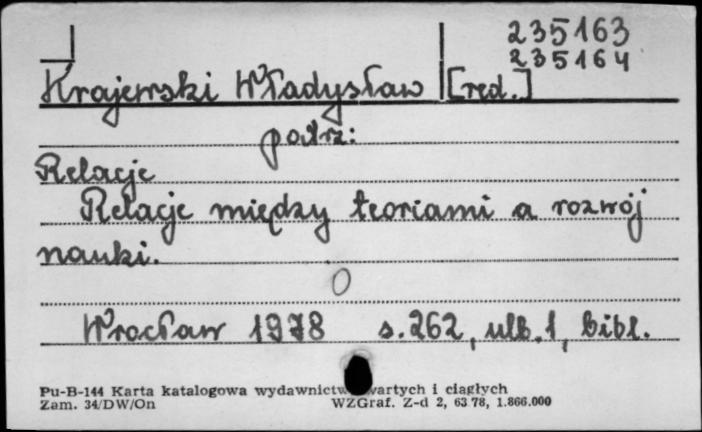 235163
235164
Krajewski Władysław [red.]
patrz:
Relacje
Relacje między teoriami a rozwój
nauki.
O
Wrocław 1978 s. 262, ulb. 1, bibl.
Pu-B-144 Karta katalogowa wydawnictw wartych i ciągłych
Zam. 34/DW/On WZGraf. Z-d 2, 63 78, 1.866.000